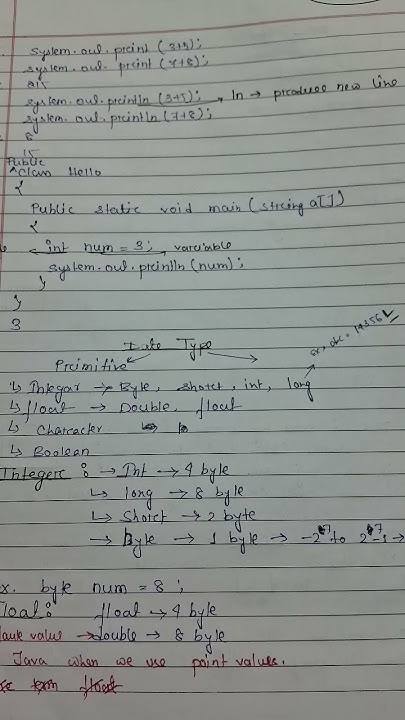 system.out.print (3+5);
system.out.print (7+8);
815
system.out.println (3+5); → ln → produces new line
system.out.println (7+8);
8
15
Public
^Class Hello
{
Public static void main (string a[])
{
int num = 3; → variable
system.out.println (num);
}
}
3
Data Type
Primitive
↳ Integar → Byte, short, int, long
↳ float → Double, float
↳ Character
↳ Boolean
Integer : → Int → 4 byte
↳ long → 8 byte
↳ Short → 2 byte
→ Byte → 1 byte → -2^7 to 2^7-1 →
x. byte num = 8 ;
Float : float → 4 byte
value → double → 8 byte
Java when we use point values.